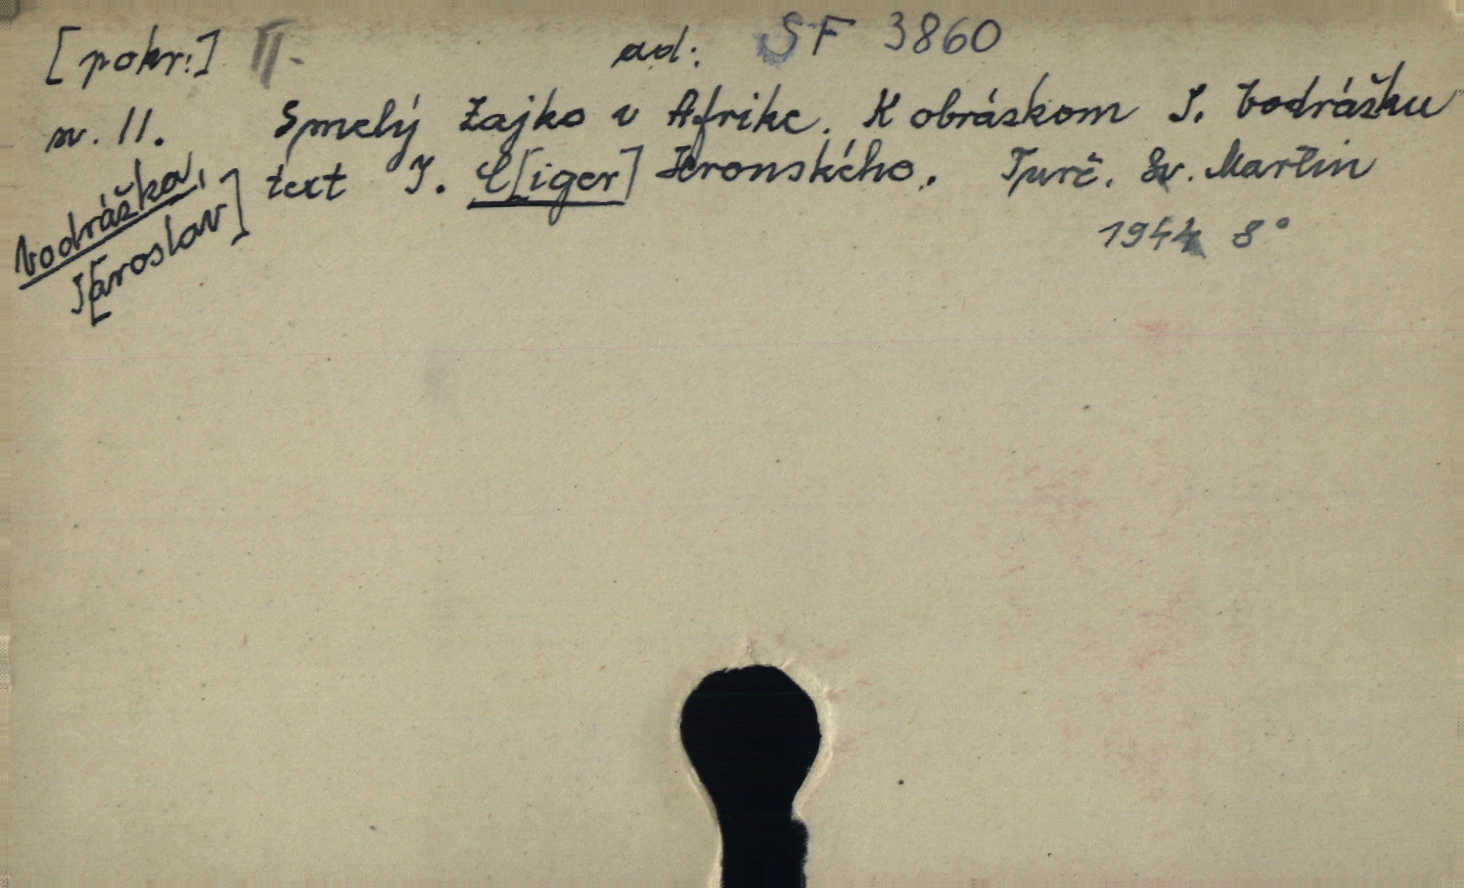 [pokr.] II. ad: SF 3860
sv. 11. Smelý Zajko v Afrike. K obrázkom J. Vodrážku
text J. C[iger] Hronského. Turč. Sv. Martin
1944 8°
Vodrážka,
J[aroslav]